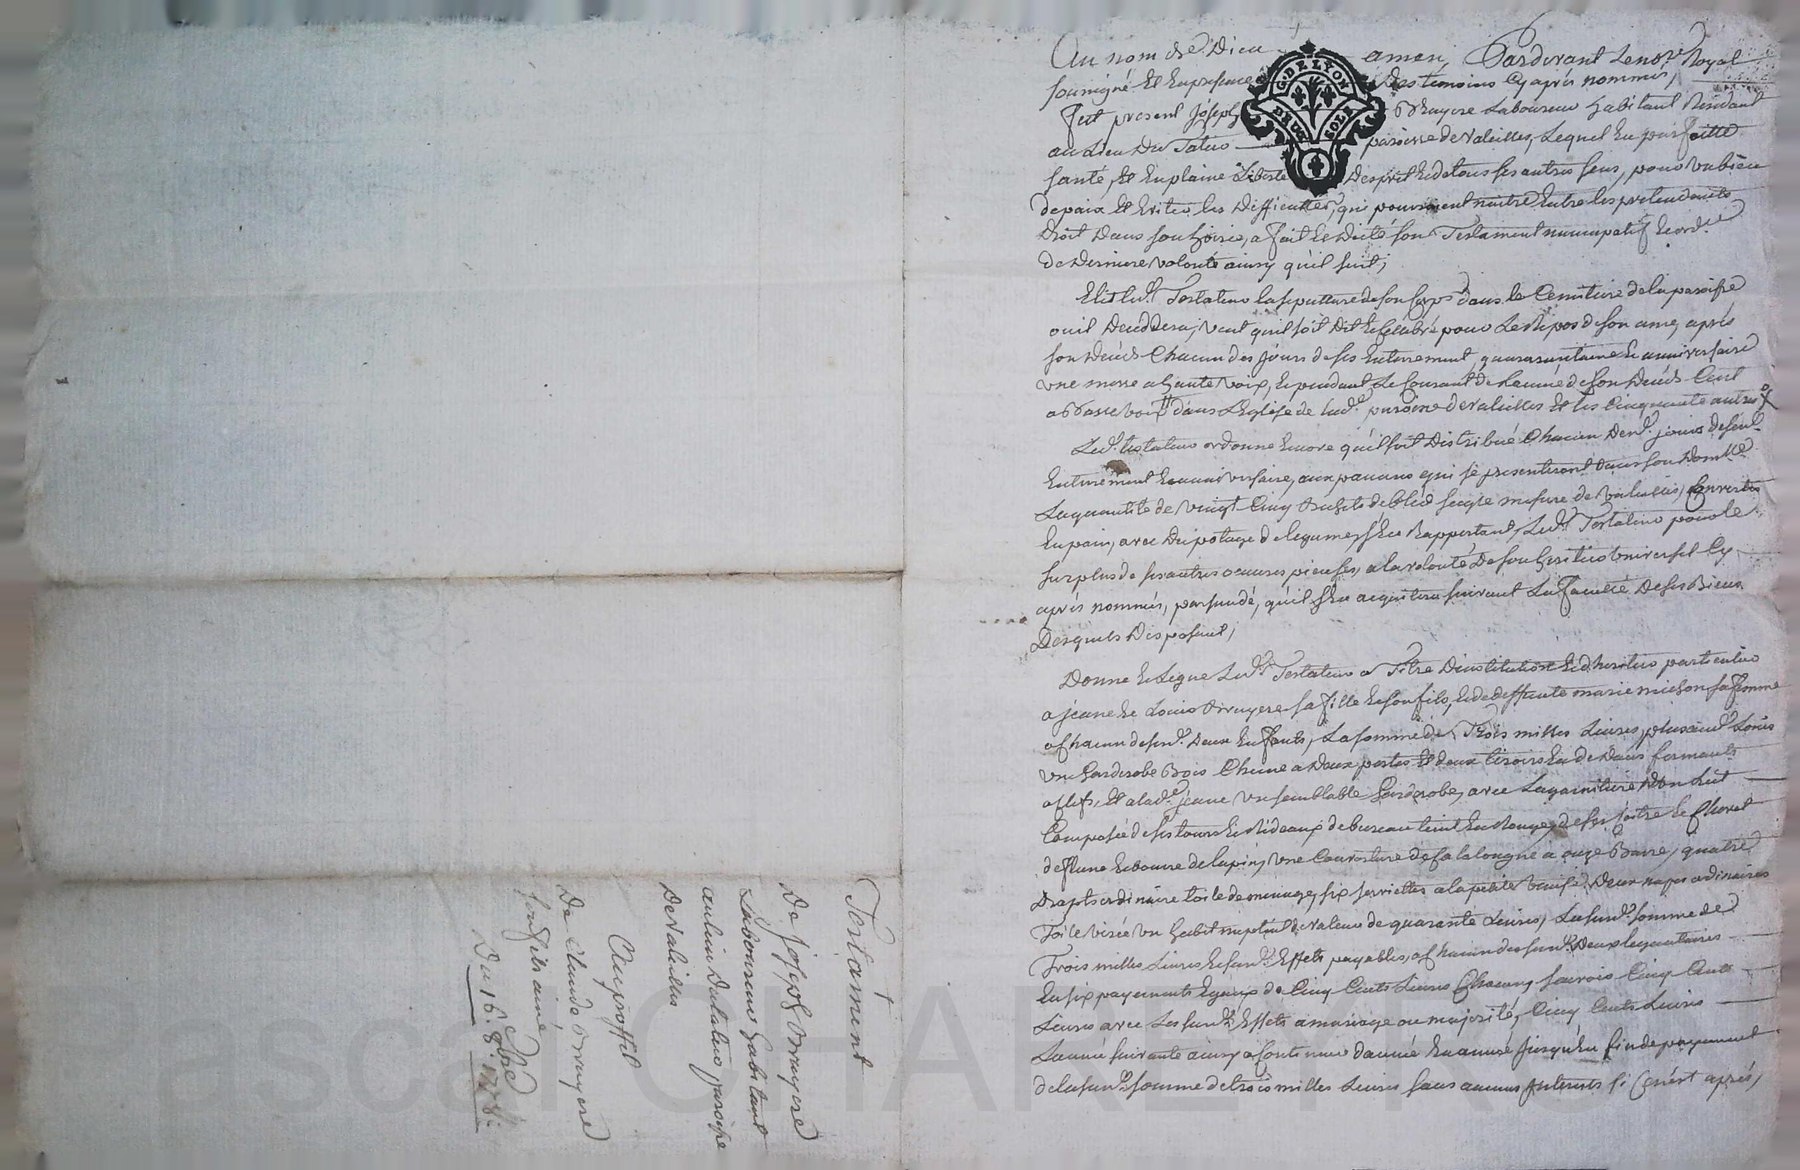 Au nom de Dieu amen, Pardevant Le no.re Royal
soussigné Et En presence des temoins Cy après nommés,
Fut present Joseph Bruyere Laboureur habitant Résidant
au Lieu Du Talus paroisse de Valeilles, Lequel En parfaitte
santé, Et En plaine Liberté D'esprit Et de tous ses autres sens, pour Un bien
de paix Et Eviter les Difficultés, qui pourroient naitre Entre les pretendants
droit Dans son hoirie, a fait Et Dicté son Testament nuncupatif Et ord.ce
de Derniere volonté ainsy qu'il suit;
Elit Led.t Testateur la sepulture de son Corps dans le Cemitiere de la paroisse
ou il Deceddera, Veut qu'il soit Dit Et Celebré pour Le Repos de son ame, après
son Decès Chacun des Jours de ses Enterrement quarantaine Et anniversaire
Une messe a haute voix, Et pendant Le Courant de L'année de son Decès Cent
a Basse voix dans L'Eglise de lad.e paroisse de Valeilles Et les Cinquante autres
Led.t testateur ordonne Encore qu'il soit Distribué Chacun Desd.t jours de send.t
Enterrement Et anniversaire, aux pauvres qui se presenteront dans son Domicile
La quantité de Vingt Cinq Bichets de bled seigle mesure de Valeilles, Convertis
En pain, avec Du potage de legumes, s'En Rapportant Led.t Testateur pour le
surplus de ses autres oeuvres pieuses, a la volonté De son heritier Universel Cy
après nommés, persuadé, qu'il s'En acquitera suivant La faculté De ses Biens
Desquels Disposant;
Donne Et Legue Led.t Testateur a Titre D'institution Et d'heritier particulier
a jeane Et Louis Bruyere sa fille Et son fils, Et de deffunte marie michon sa femme
a Chacun de sesd.t Deux Enfants, La somme de Trois milles Livres, plus aud.t Louis
Un Garderobe Bois Chene a Deux portes Et deux tiroirs En dedans fermants
a Clefs, Et a lad.e jeane Un semblable Garderobe, avec La garniture D'un Lit
Composée de ses tours Et Rideaux de bureau teint En Rouge, de Coitre Et Chevet
de plume Et bourre de lapin, Une Couverture de Catalougne a onze Barre, quatre
Drapts ordinaire toile de menage, six serviettes a la petite Venise, Deux nappes ordinaires
Toile Virée Un habit nuptial de valeur de quarante Livres, La susd.e somme de
Trois milles Livres Et susd.ts Effets payables, a Chacun des susd.ts Deux legataires
En six payements Egaux de Cinq Cents Livres Chacun, savoir Cinq Cents
Livres avec Les susd.ts Effets a mariage ou majorité, Cinq Cents Livres
L'année suivante ainsy a Continuer d'année En année jusqu'En fin de payement
de la susd.e somme de trois milles Livres sans aucuns Interets si Ce n'est après,
Testament
De joseph Bruyere
Laboureur habitant
au lieu Du talus paroisse
De Valeilles
Au proffit
De Claude Bruyere
son fils ainé
Du 16. 8.bre 1778.